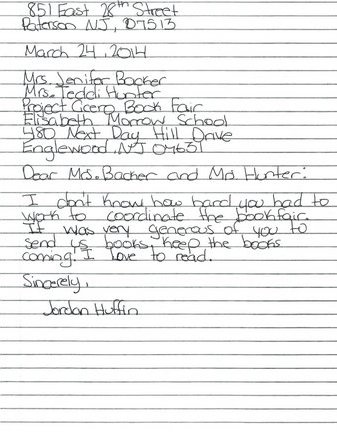 851 East 28th Street
Paterson NJ, 07513
March 24, 2014
Mrs. Jenifer Backer
Mrs. Teddi Hunter
Project Cicero Book Fair
Elisabeth Morrow School
480 Next Day Hill Drive
Englewood, NJ 07631
Dear Mrs. Backer and Mrs. Hunter:
I don't know how hard you had to
work to coordinate the bookfair.
It was very generous of you to
send us books, keep the books
coming! I love to read.
Sincerely,
Jordan Huffin